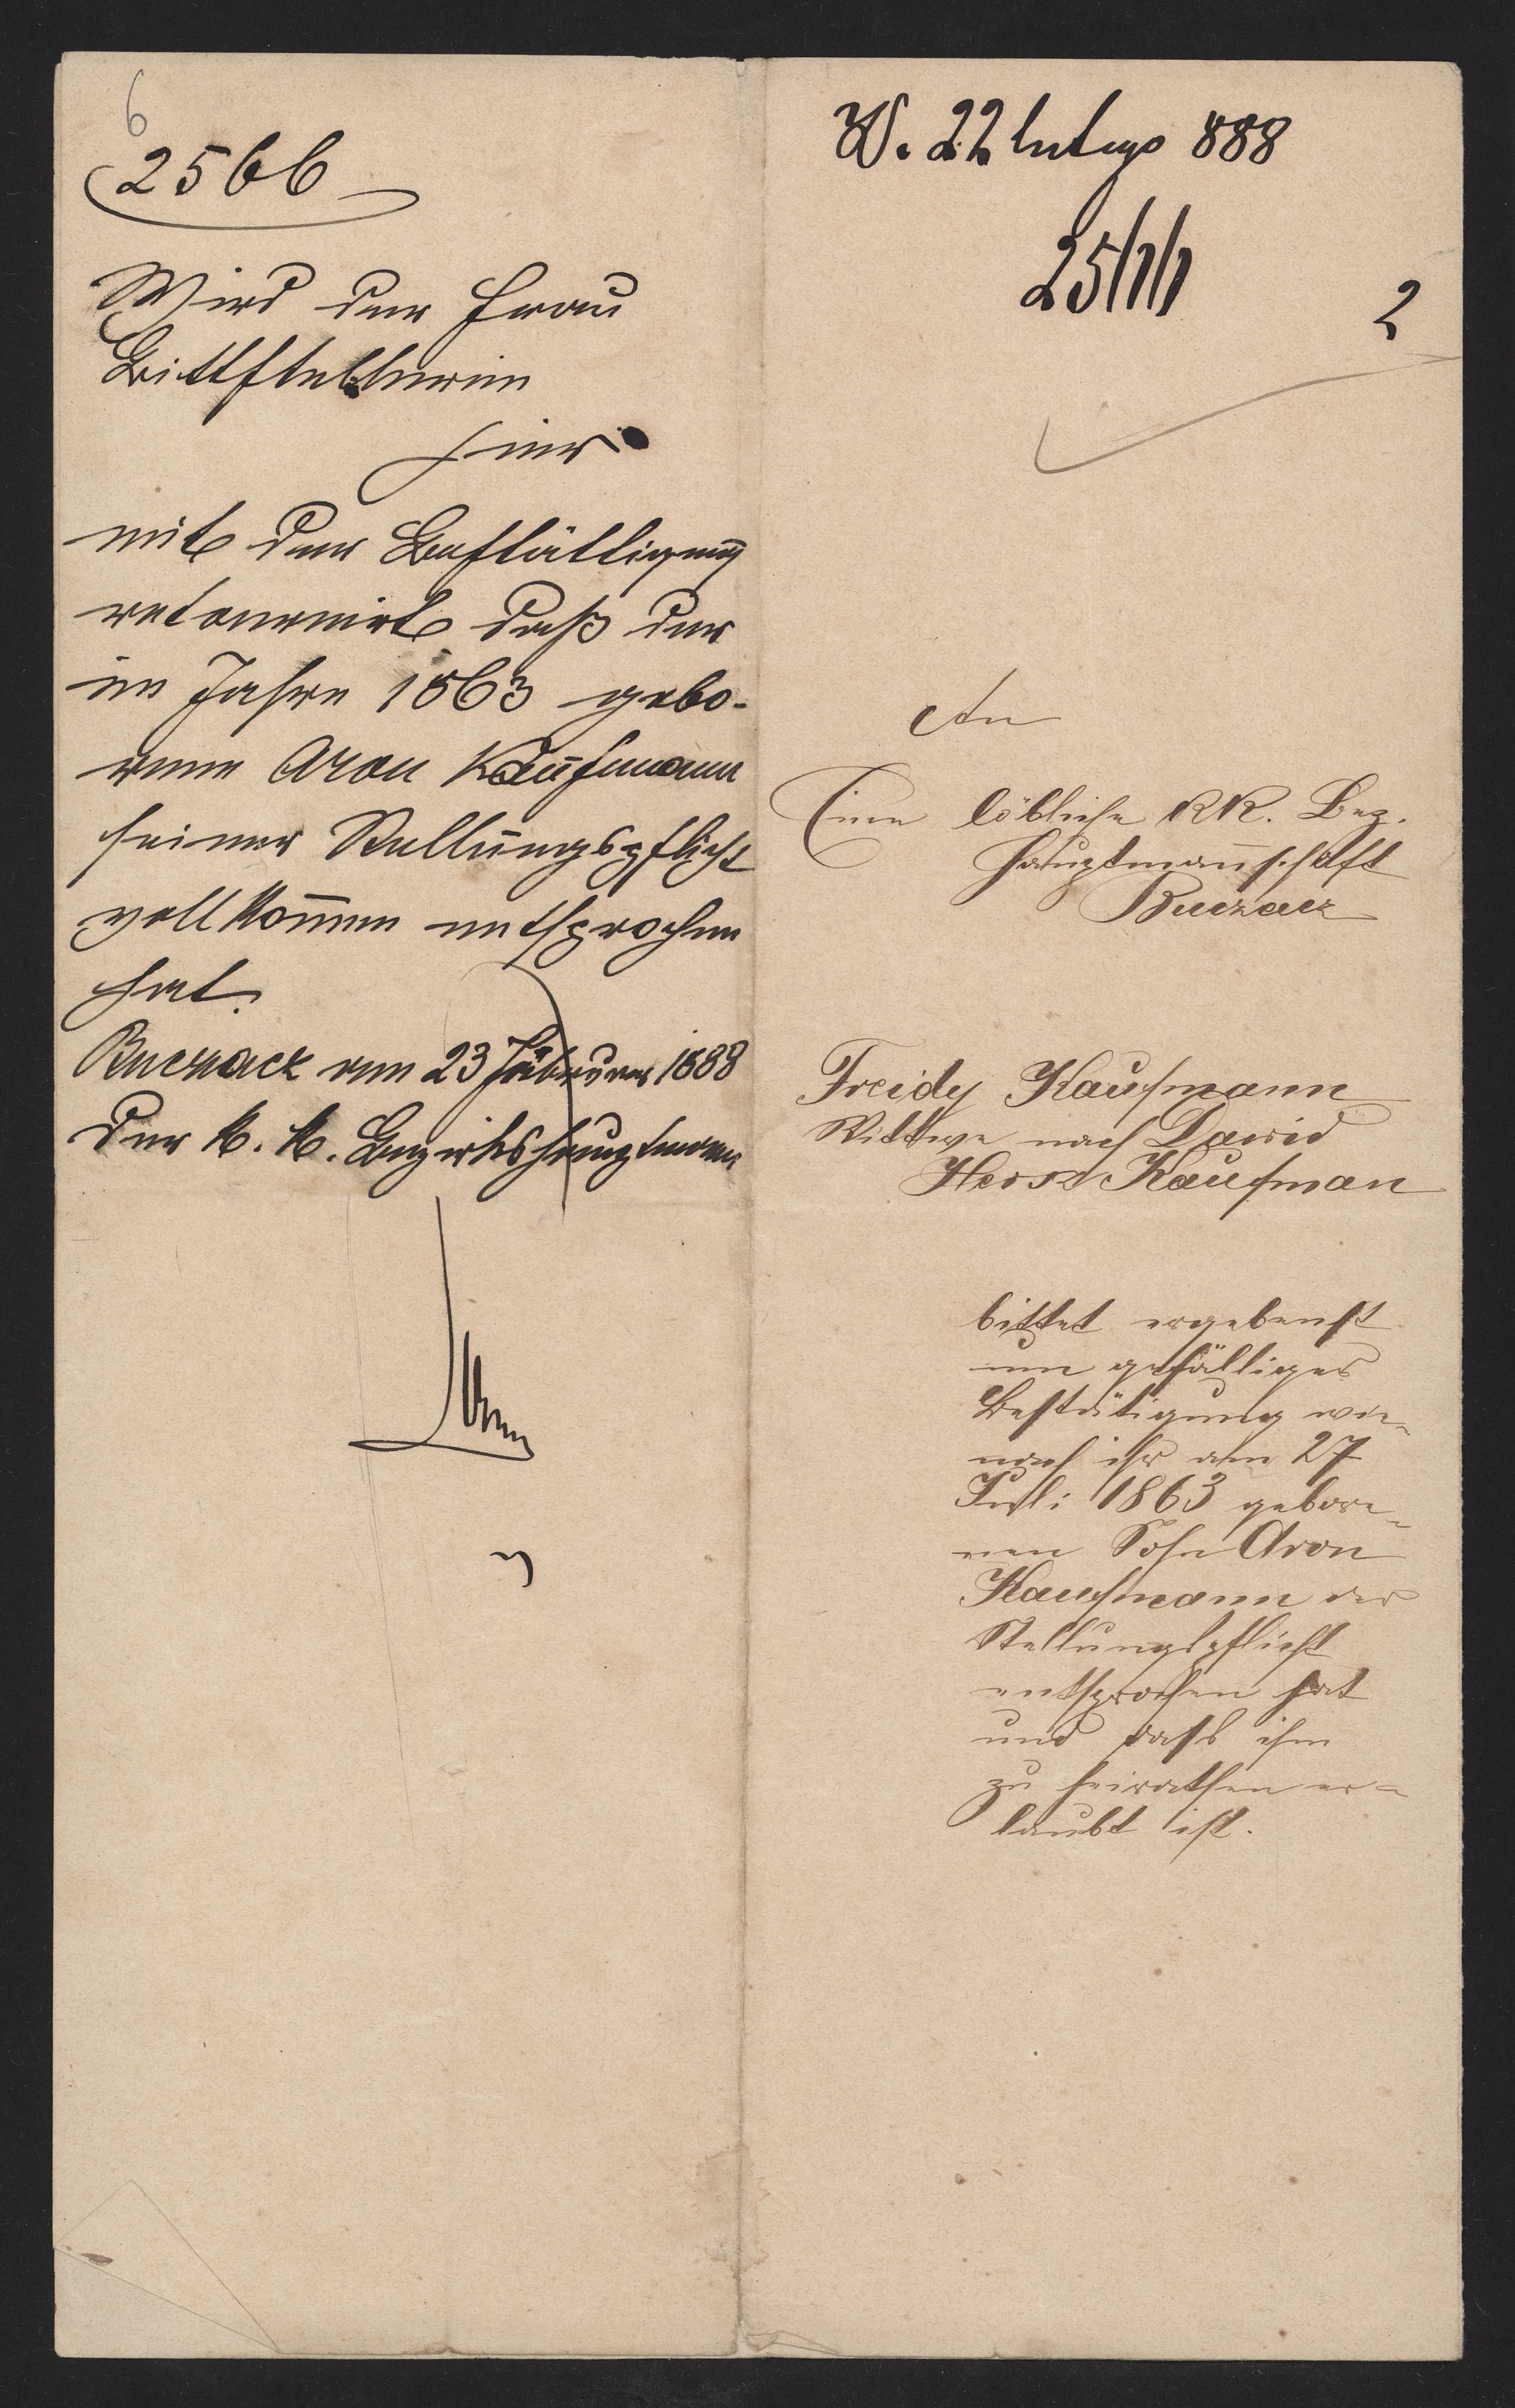 6
2566
Wird der Frau
Bittstellerin
hier
mit der Bestättigung
retournirt daß der
im Jahre 1863 gebo-
rene Aron Kaufmann
seiner Stellungspflicht
vollkom̄en entsprochen
hat.
Buczacz am 23 Februar 1888
Der k. k. Bezirkshauptmann
W. 22 lutego 888
2566
2
An
Eine löbliche KK. Bez.
Hauptman̄schaft
Buczacz
Freidy Kaufmann
Wittwe nach Dawid
Hersz Kaufman
bittet ergebenst
um gefälliges
Bestätigung wo-
nach ihr am 27
Juli 1863 gebore-
nen Sohn Aron
Kaufmann der
Stellungspflicht
entsprochen hat
und dass ihm
zu heirathen er-
laubt ist.